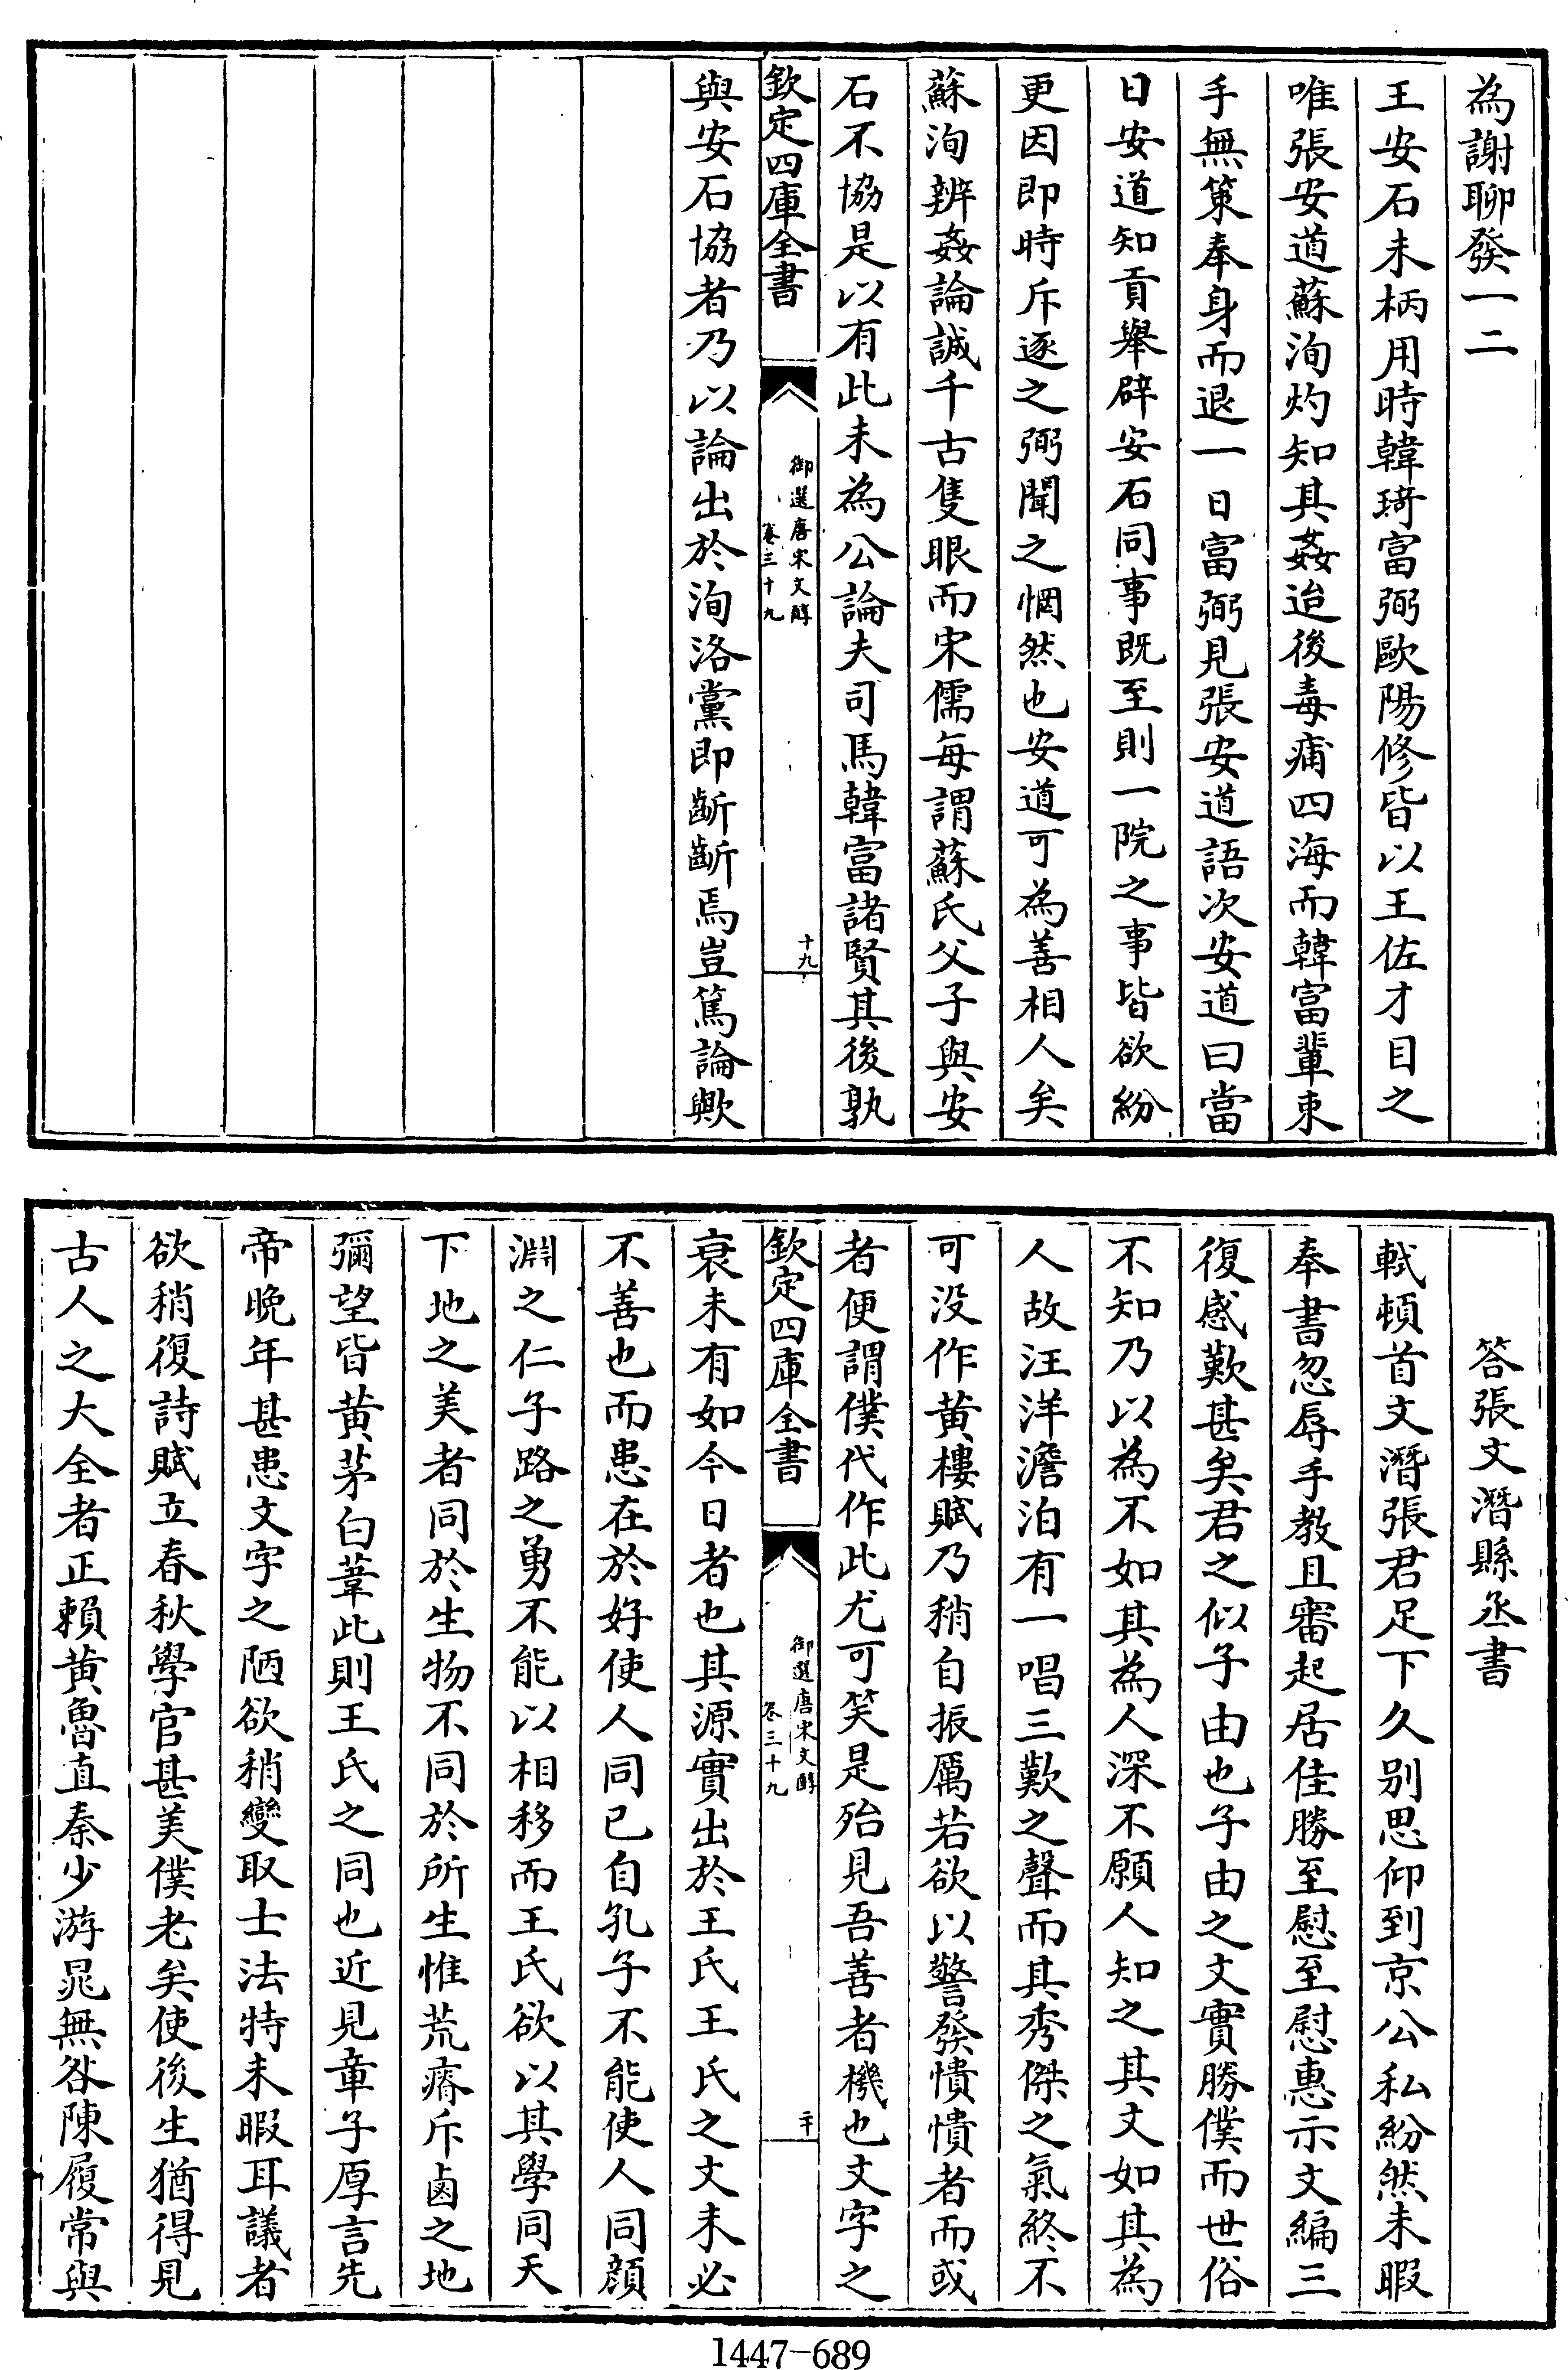 為謝聊發一二
王安石未柄用時韓琦富弼歐陽修皆以王佐才目之
唯張安道蘇洵灼知其姦迨後毒痡四海而韓富輩束
手無策奉身而退一日富弼見張安道語次安道曰當
日安道知貢舉辟安石同事既至則一院之事皆欲紛
更因即時斥逐之弼聞之惘然也安道可為善相人矣
蘇洵辨姦論誠千古隻眼而宋儒每謂蘇氏父子與安
石不協是以有此未為公論夫司馬韓富諸賢其後孰
欽定四庫全書
御選唐宋文醇
卷三十九
十九
與安石協者乃以論出於洵洛黨即齗齗焉豈篤論歟
答張文潛縣丞書
軾頓首文潛張君足下久別思仰到京公私紛然未暇
奉書忽辱手教且審起居佳勝至慰至慰惠示文編三
復感歎甚矣君之似子由也子由之文實勝僕而世俗
不知乃以為不如其為人深不願人知之其文如其為
人故汪洋澹泊有一唱三歎之聲而其秀傑之氣終不
可没作黄樓賦乃稍自振厲若欲以警發憒憒者而或
者便謂僕代作此尤可笑是殆見吾善者機也文字之
欽定四庫全書
御選唐宋文醇
卷三十九
二十
衰未有如今日者也其源實出於王氏王氏之文未必
不善也而患在於好使人同已自孔子不能使人同顔
淵之仁子路之勇不能以相移而王氏欲以其學同天
下地之美者同於生物不同於所生惟荒瘠斥鹵之地
彌望皆黄茅白葦此則王氏之同也近見章子厚言先
帝晚年甚患文字之陋欲稍變取士法特未暇耳議者
欲稍復詩賦立春秋學官甚美僕老矣使後生猶得見
古人之大全者正賴黄魯直秦少游晁無咎陳履常與
1447-689